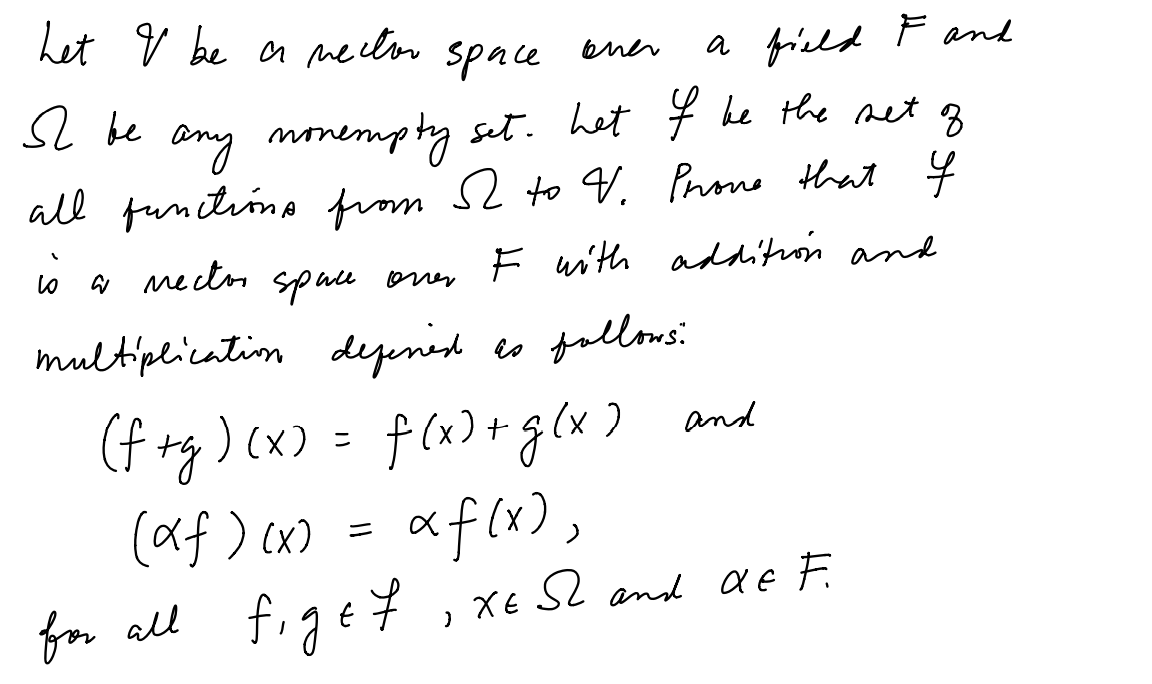 Let 𝒱 be a vector space over a field F and
Ω be any nonempty set. Let ℱ be the set of
all functions from Ω to 𝒱. Prove that ℱ
is a vector space over F with addition and
multiplication defined as follows:
(f+g)(x) = f(x)+g(x) and
(αf)(x) = αf(x),
for all f,g ∈ ℱ, x ∈ Ω and α ∈ F.